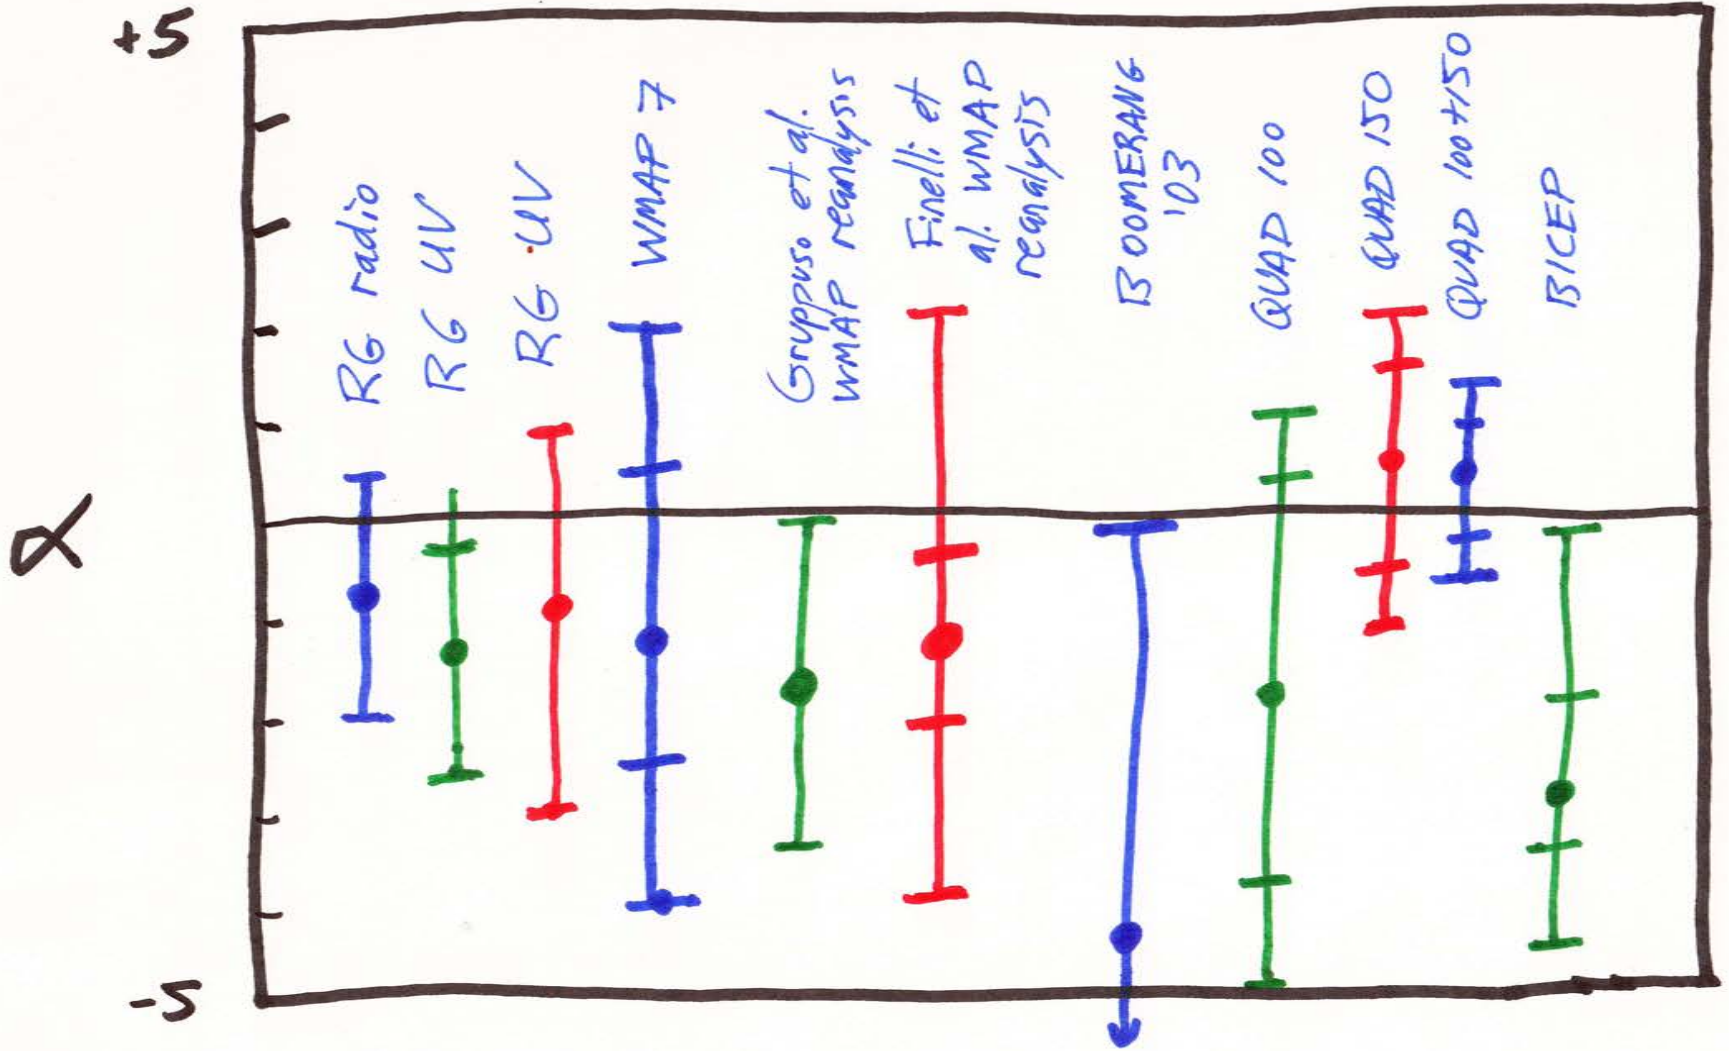 +5
α
-5
RG radio
RG UV
RG UV
WMAP 7
Gruppuso et al.
WMAP reanalysis
Finelli et
al. WMAP
reanalysis
BOOMERANG
'03
QUAD 100
QUAD 150
QUAD 100+150
BICEP